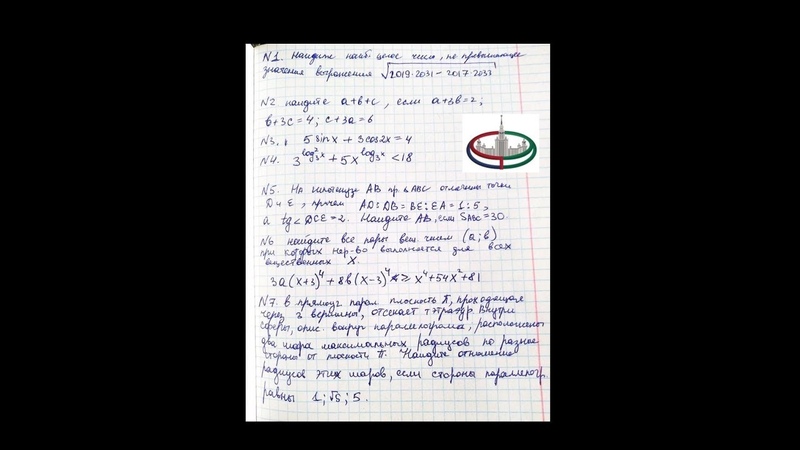 N1. Найдите наиб. целое число, не превышающее
значения выражения √2019·2031 − 2017·2033
N2 найдите a+b+c, если a+3b=2;
b+3c=4; c+3a=6
N3. 5 sin x + 3 cos 2x = 4
N4. 3^{log²₃x} + 5x^{log₃x} < 18
N5. На гипотенузе AB пр. Δ ABC отмечены точки
D и E, причем AD:DB = BE:EA = 1:5,
а tg∠DCE = 2. Найдите AB, если S_ABC = 30.
N6 найдите все пары вещ. чисел (a; b)
при которых нер-во выполняется для всех
вещественных X.
3a(x+3)⁴ + 8b(x−3)⁴ ≥ x⁴ + 54x² + 81
N7. В прямоуг. парал. плоскость π, проходящая
через 3 вершины, отсекает тэтраэдр. Внутри
сферы, опис. вокруг параллелограма, расположены
два шара максимальных радиусов по разные
стороны от плоскости π. Найдите отношение
радиусов этих шаров, если стороны параллелогр.
равны 1; √5; 5.